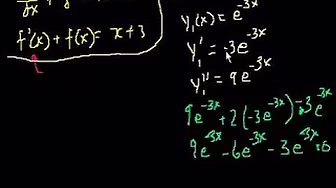 f'(x) + f(x) = x + 3
y₁(x) = e^{-3x}
y₁' = -3e^{-3x}
y₁'' = 9e^{-3x}
9e^{-3x} + 2(-3e^{-3x}) - 3e^{-3x}
9e^{-3x} - 6e^{-3x} - 3e^{-3x} = 0